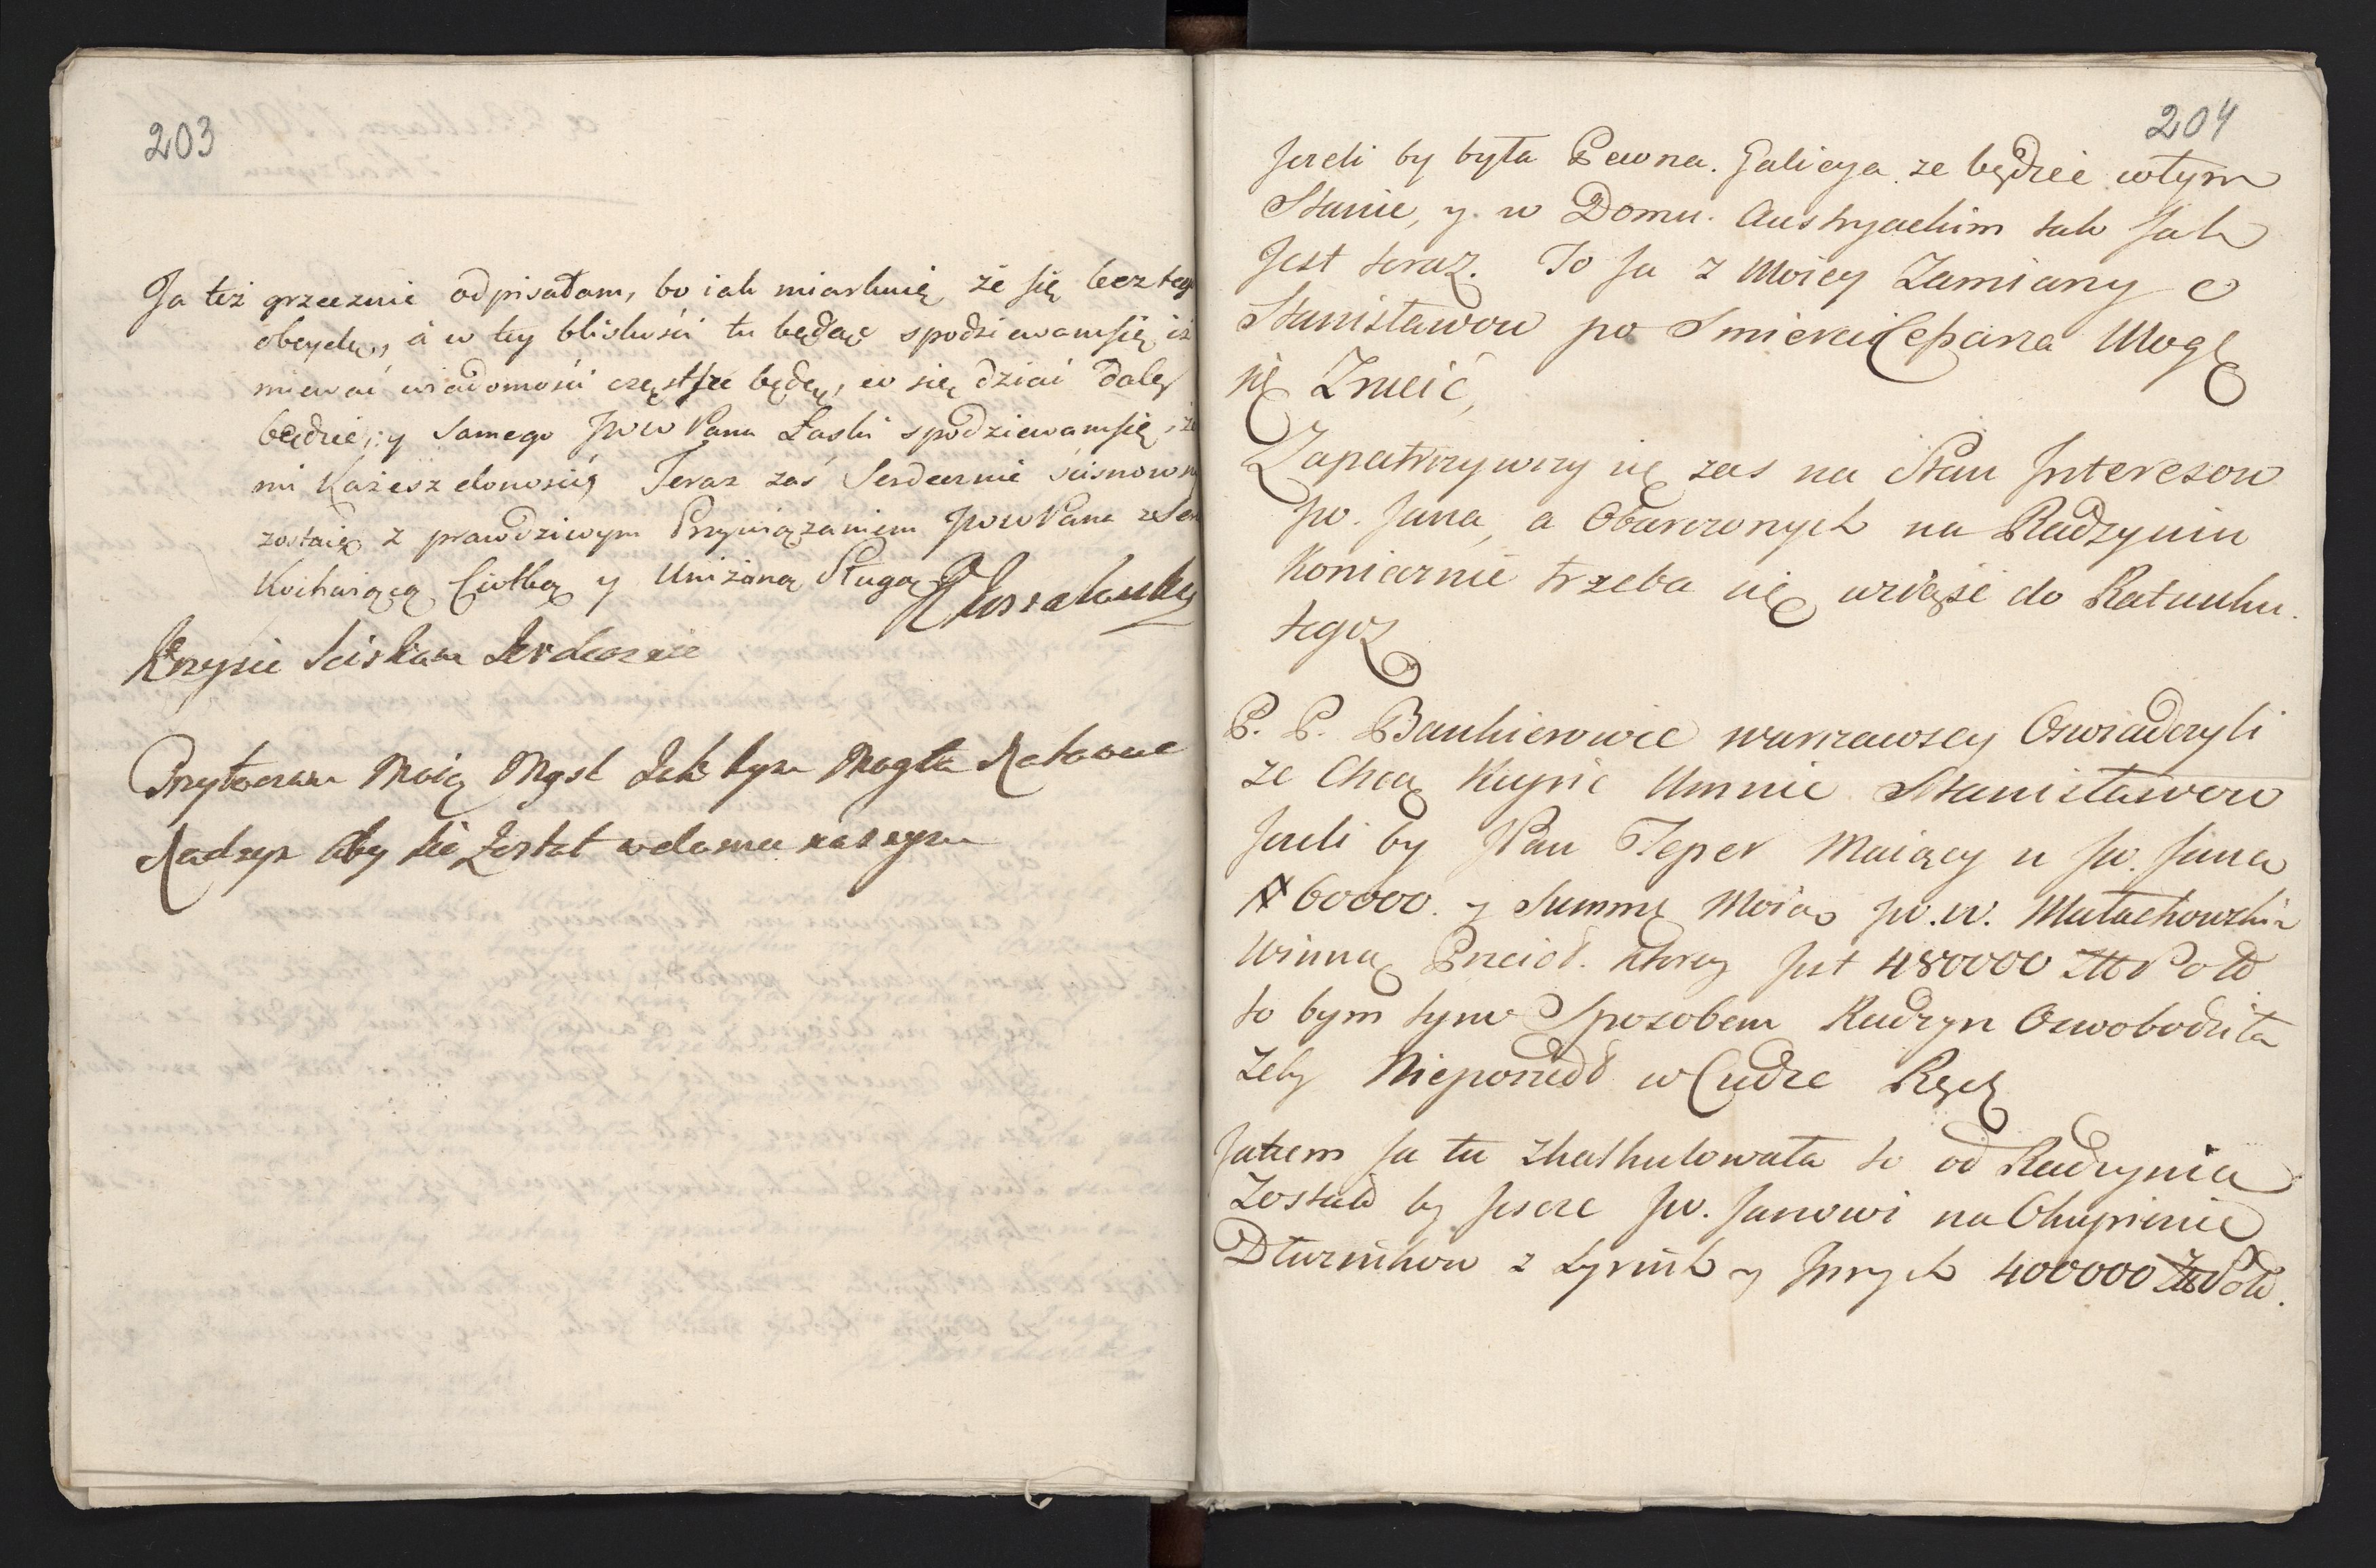 203
Ja też grzecznie odpisałam, bo iak miarkuię że się bez tego
obeydę, a w tey bliskości tu będąc spodziewam się iż
miewać wiadomości częstsze będę, co się dziać daley
będzie, y samego JWWPana Łaski spodziewam się, że
mi każesz donosić, Teraz zaś Serdecznie uścisnowszy
zostaię z prawdziwym Przywiązaniem JWWPana
Kochaiącą Ciotką y Uniżoną Sługą
Krzysie Sciskam Serdecznie
Przytaczam Moią Mysl Jak bym Mogła Ratować
Radzyn aby sie Został w domu naszym
204
Jezeli by była Pewna Galicya ze będzie w tym
Stanie, y w Domu Austryackim tak Jak
Jest teraz. To Ja z Moiey Zamiany o
Stanisławow po Smierci Cesarza Mogę
się Zrucić,
Zapatrzywszy się zas na Stan Interesow
Jw. Jana, a Obarczonych na Radzyniu
Koniecznie trzeba się wziąść do Ratunku
tegoz
P. P. Bankierowie warszawscy Oswiadczyli
ze Chcą Kupic Umnie Stanisławow
Jezeli by JPan Teper Maiący u Jw. Jana
# 60000. y Summę Moią Jw. W. Małachowskie
Winną Przeioł. ktorey Jest 480000 Zło Pol
to bym tym Sposobem Radzyn Oswobodziła
Zeby Nieposzedł w Cudze Ręce
Jakem Ja tu zkalkulowała to od Radzynia
Zostało by Jescze Jw. Janowi na Okupienie
Dłuznikow z tyrich y Jnych 400000 Zło Pol.